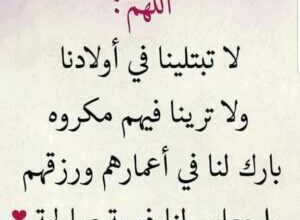 اللهم :
لا تبتلينا في أولادنا
ولا ترينا فيهم مكروه
بارك لنا في أعمارهم ورزقهم